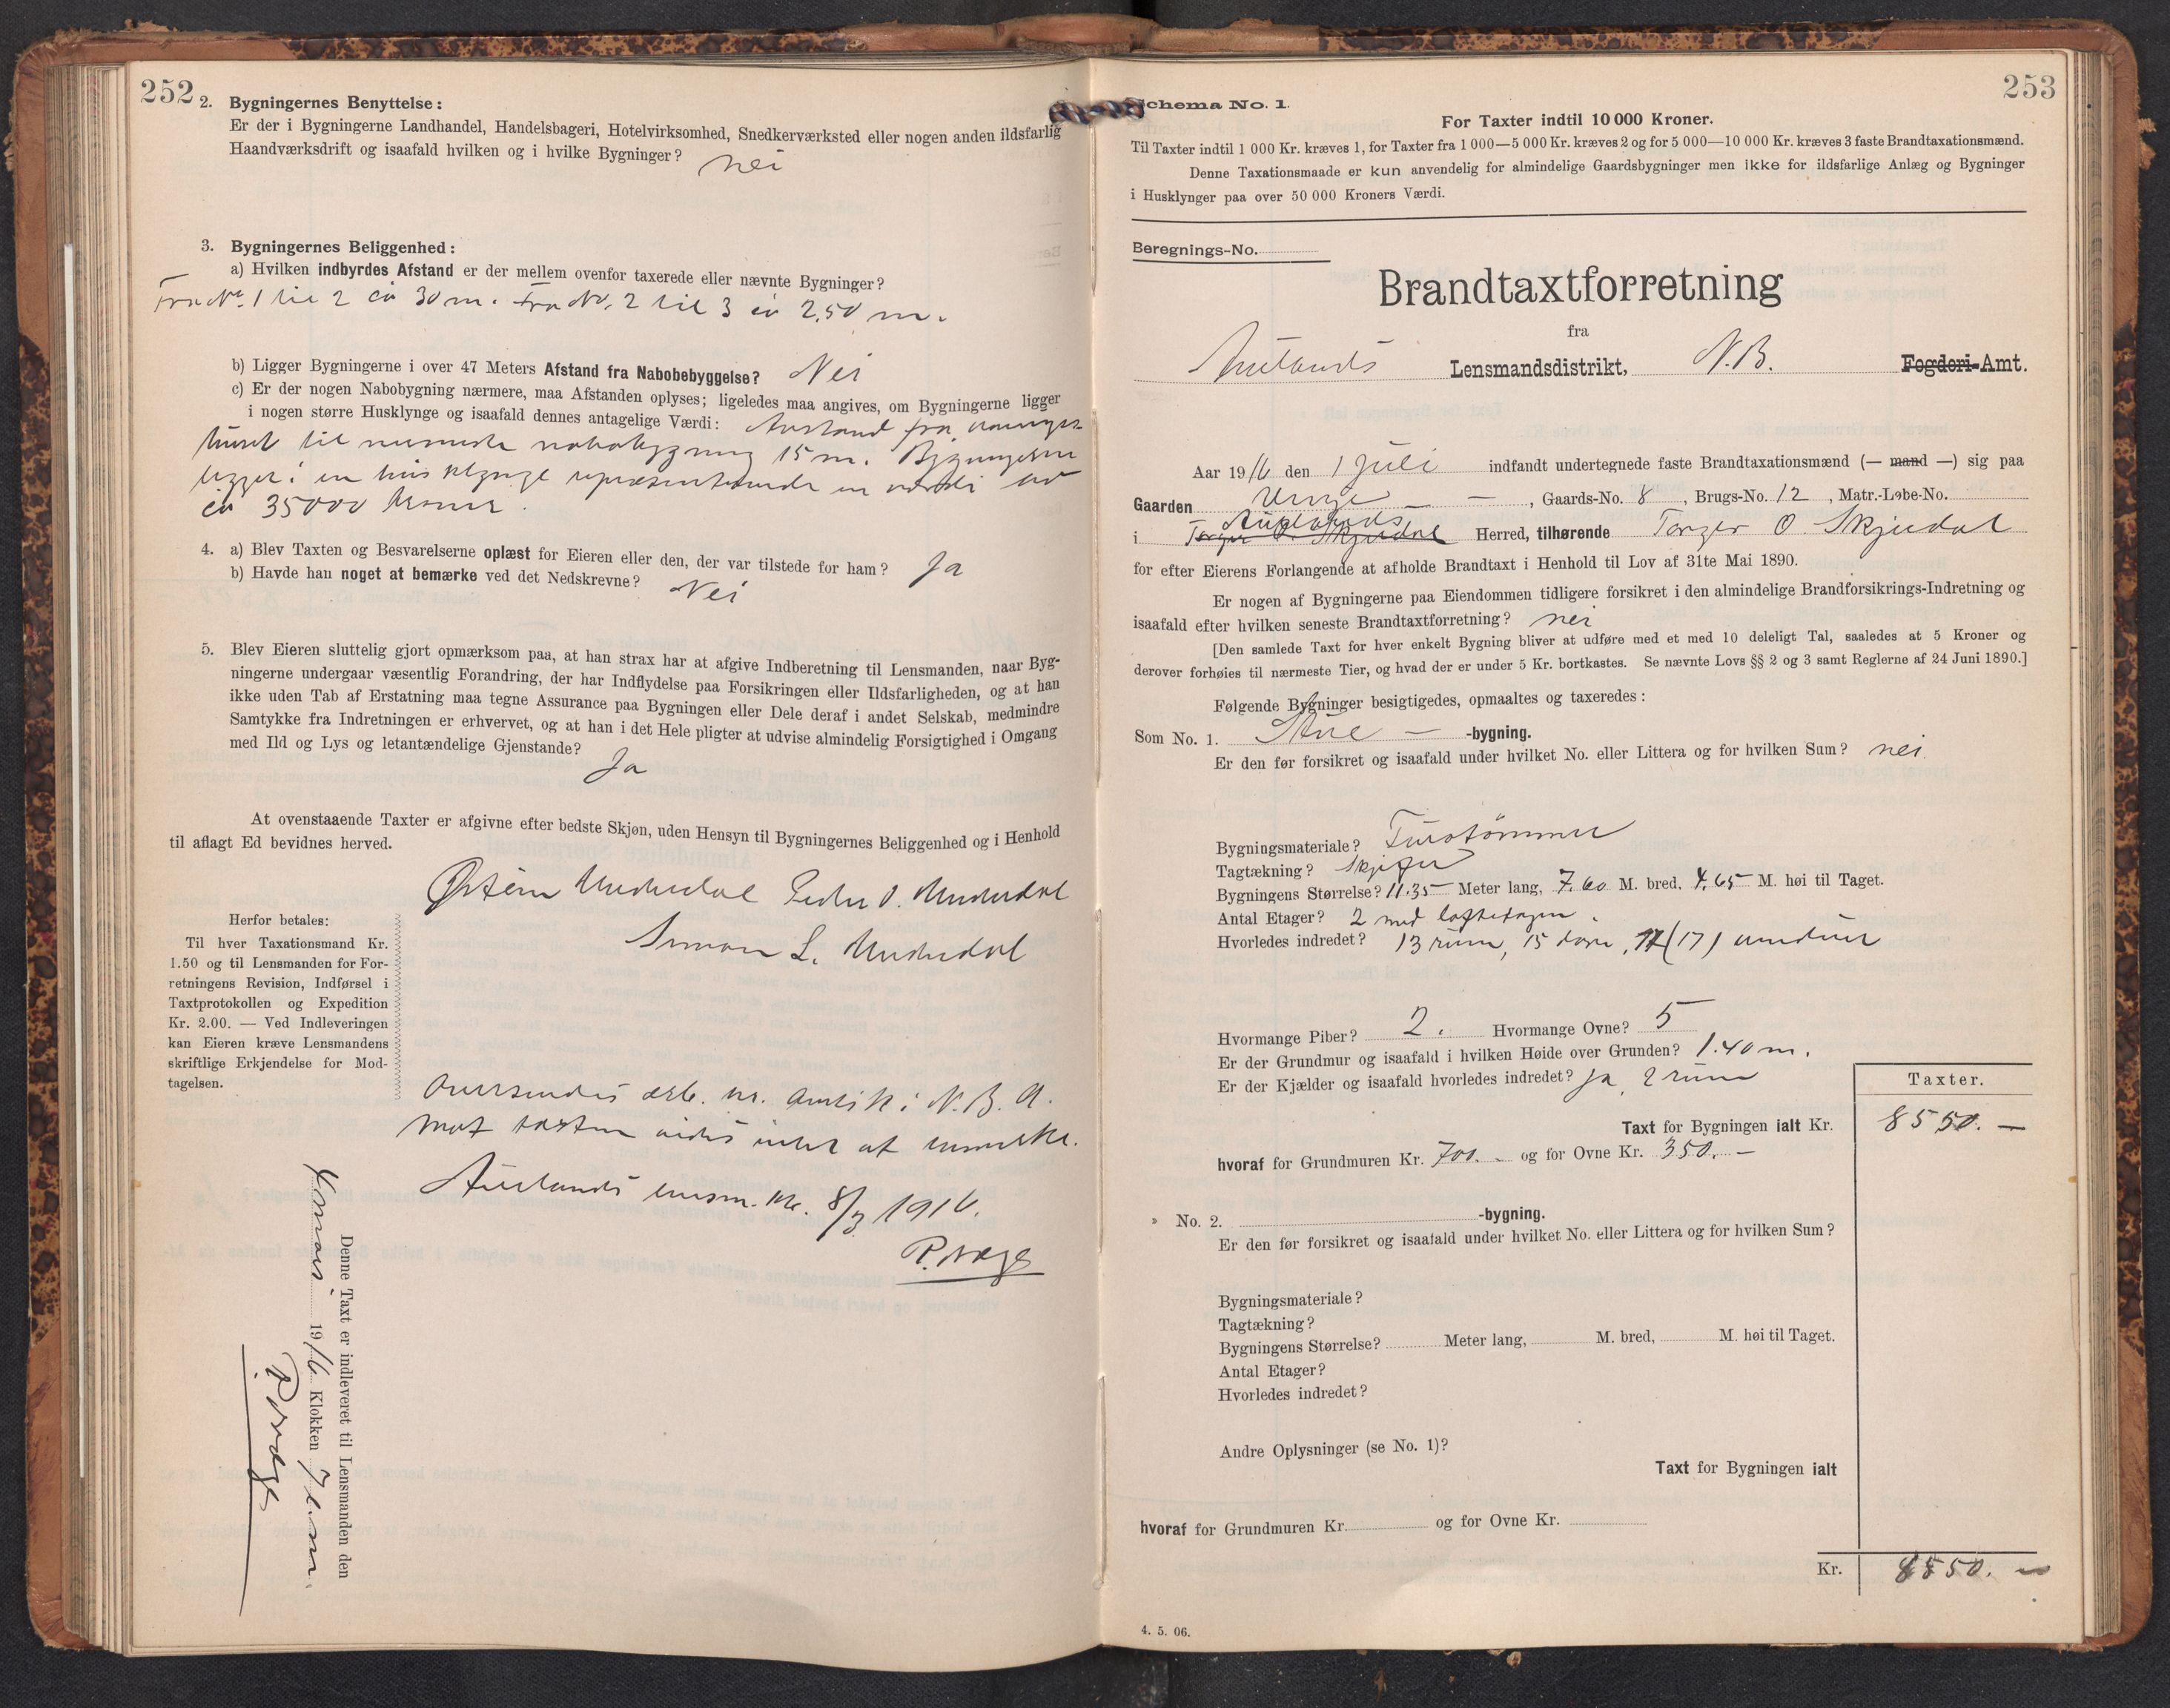 252
2. Bygningernes Benyttelse:
Er der i Bygningerne Landhandel, Handelsbageri, Hotelvirksomhed, Snedkerværksted eller nogen anden ildsfarlig
Haandværksdrift og isaafald hvilken og i hvilke Bygninger? nei
3. Bygningernes Beliggenhed:
a) Hvilken indbyrdes Afstand er der mellem ovenfor taxerede eller nævnte Bygninger?
Fra No. 1 til 2 ca 30 m. Fra No. 2 til 3 ca 2.50 m.
b) Ligger Bygningerne i over 47 Meters Afstand fra Nabobebyggelse? Nei
c) Er der nogen Nabobygning nærmere, maa Afstanden oplyses; ligeledes maa angives, om Bygningerne ligger
i nogen større Husklynge og isaafald dennes antagelige Værdi: Avstand fra
huset til nærmeste nabobygning 15 m. Bygningerne
ligger i en husklynge repræsenterende en værdi av
ca 35000 kroner.
4. a) Blev Taxten og Besvarelserne oplæst for Eieren eller den, der var tilstede for ham? Ja
b) Havde han noget at bemærke ved det Nedskrevne? Nei
5. Blev Eieren sluttelig gjort opmærksom paa, at han strax har at afgive Indberetning til Lensmanden, naar Byg-
ningerne undergaar væsentlig Forandring, der har Indflydelse paa Forsikringen eller Ildsfarligheden, og at han
ikke uden Tab af Erstatning maa tegne Assurance paa Bygningen eller Dele deraf i andet Selskab, medmindre
Samtykke fra Indretningen er erhvervet, og at han i det Hele pligter at udvise almindelig Forsigtighed i Omgang
med Ild og Lys og letantændelige Gjenstande? Ja
At ovenstaaende Taxter er afgivne efter bedste Skjøn, uden Hensyn til Bygningernes Beliggenhed og i Henhold
til aflagt Ed bevidnes herved.
Østein Underdal Peder O. Underdal
Simon L. Underdal
Herfor betales:
Til hver Taxationsmand Kr.
1.50 og til Lensmanden for For-
retningens Revision, Indførsel i
Taxtprotokollen og Expedition
Kr. 2.00. — Ved Indleveringen
kan Eieren kræve Lensmandens
skriftlige Erkjendelse for Mod-
tagelsen.
Oversendes ærb. hr. amtsk i N. B. A.
Mot taxten vides intet at bemerke.
Aurlands lensm.ktr. 8/7 1916.
R. Næge
Denne Taxt er indleveret til Lensmanden den
1916 Klokken 7
253
Schema No. 1.
For Taxter indtil 10 000 Kroner.
Til Taxter indtil 1 000 Kr. kræves 1, for Taxter fra 1 000—5 000 Kr. kræves 2 og for 5 000—10 000 Kr. kræves 3 faste Brandtaxationsmænd.
Denne Taxationsmaade er kun anvendelig for almindelige Gaardsbygninger men ikke for ildsfarlige Anlæg og Bygninger
i Husklynger paa over 50 000 Kroners Værdi.
Beregnings-No.
Brandtaxtforretning
fra
Aurlands Lensmandsdistrikt, N.B. Fogderi-Amt.
Aar 1916 den 1 juli indfandt undertegnede faste Brandtaxationsmænd (— mand —) sig paa
Gaarden Vinje — , Gaards-No. 8 , Brugs-No. 12 , Matr.-Løbe-No.
Aurlands
i Torger O. Skjerdal Herred, tilhørende Torger O. Skjerdal
for efter Eierens Forlangende at afholde Brandtaxt i Henhold til Lov af 31te Mai 1890.
Er nogen af Bygningerne paa Eiendommen tidligere forsikret i den almindelige Brandforsikrings-Indretning og
isaafald efter hvilken seneste Brandtaxtforretning? nei
[Den samlede Taxt for hver enkelt Bygning bliver at udføre med et med 10 deleligt Tal, saaledes at 5 Kroner og
derover forhøies til nærmeste Tier, og hvad der er under 5 Kr. bortkastes. Se nævnte Lovs §§ 2 og 3 samt Reglerne af 24 Juni 1890.]
Følgende Bygninger besigtigedes, opmaaltes og taxeredes:
Som No. 1. Stue — -bygning.
Er den før forsikret og isaafald under hvilket No. eller Littera og for hvilken Sum? nei
Bygningsmateriale? Furotømmer
Tagtækning? Skjifer
Bygningens Størrelse? 11.35 Meter lang, 7.60 M. bred, 4.65 M. høi til Taget.
Antal Etager? 2 med loftetagen.
Hvorledes indredet? 13 rum, 15 døre, 17 (17) vinduer
Hvormange Piber? 2. Hvormange Ovne? 5
Er der Grundmur og isaafald i hvilken Høide over Grunden? 1.40 m.
Er der Kjælder og isaafald hvorledes indredet? ja, 2 rum
Taxter.
Taxt for Bygningen ialt Kr. 8550. —
hvoraf for Grundmuren Kr. 700. - og for Ovne Kr. 350. —
» No. 2. -bygning.
Er den før forsikret og isaafald under hvilket No. eller Littera og for hvilken Sum?
Bygningsmateriale?
Tagtækning?
Bygningens Størrelse? Meter lang, M. bred, M. høi til Taget.
Antal Etager?
Hvorledes indredet?
Andre Oplysninger (se No. 1)?
Taxt for Bygningen ialt
hvoraf for Grundmuren Kr. og for Ovne Kr.
Kr. 8550. —
4. 5. 06.